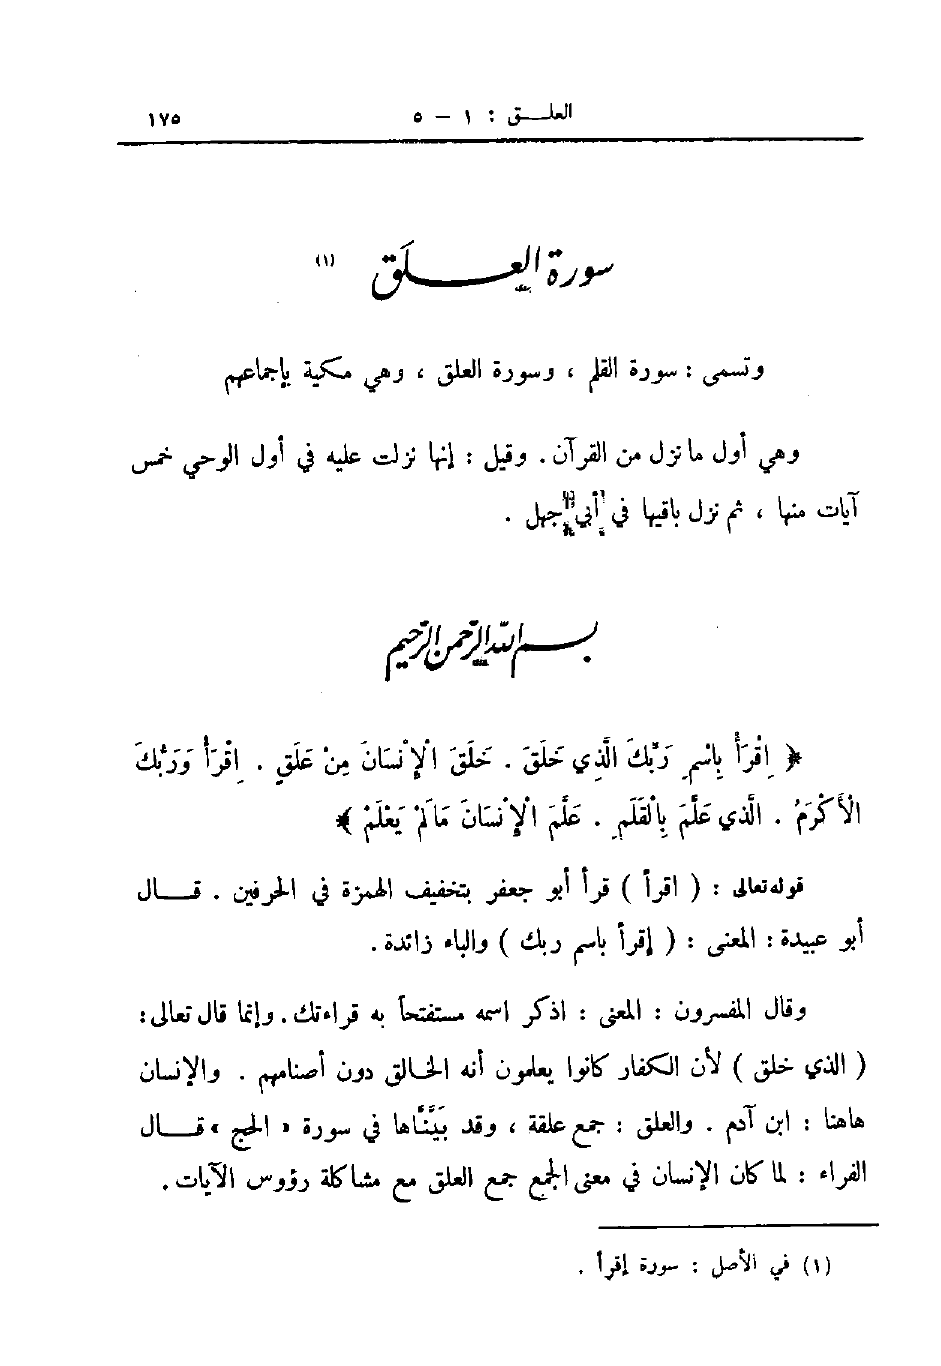 العلـــق : ١ – ٥ ١٧٥
سورة العـــلَق (١)
وتسمى : سورة القلم ، وسورة العلق ، وهي مكية بإجماعهم
وهي أول ما نزل من القرآن . وقيل : إنها نزلت عليه في أول الوحي خمس
آيات منها ، ثم نزل باقيها في أبي جهل .
بسم الله الرحمن الرحيم
﴿ اِقْرَأْ بِاسْمِ رَبِّكَ الَّذِي خَلَقَ . خَلَقَ الْإِنْسَانَ مِنْ عَلَقٍ . اِقْرَأْ وَرَبُّكَ
الْأَكْرَمُ . الَّذي عَلَّمَ بِالْقَلَمِ . عَلَّمَ الْإِنْسَانَ مَالَمْ يَعْلَمْ ﴾
قوله تعالى : ( اقرأ ) قرأ أبو جعفر بتخفيف الهمزة في الحرفين . قـــال
أبو عبيدة : المعنى : ( إقرأ باسم ربك ) والباء زائدة .
وقال المفسرون : المعنى : اذكر اسمه مستفتحاً به قراءتك . وإنما قال تعالى :
( الذي خلق ) لأن الكفار كانوا يعلمون أنه الخالق دون أصنامهم . والإنسان
هاهنا : ابن آدم . والعلق : جمع علقة ، وقد بَيَّنَّاها في سورة « الحج » قـــال
الفراء : لما كان الإنسان في معنى الجمع جمع العلق مع مشاكلة رؤوس الآيات .
(١) في الأصل : سورة إقرأ .